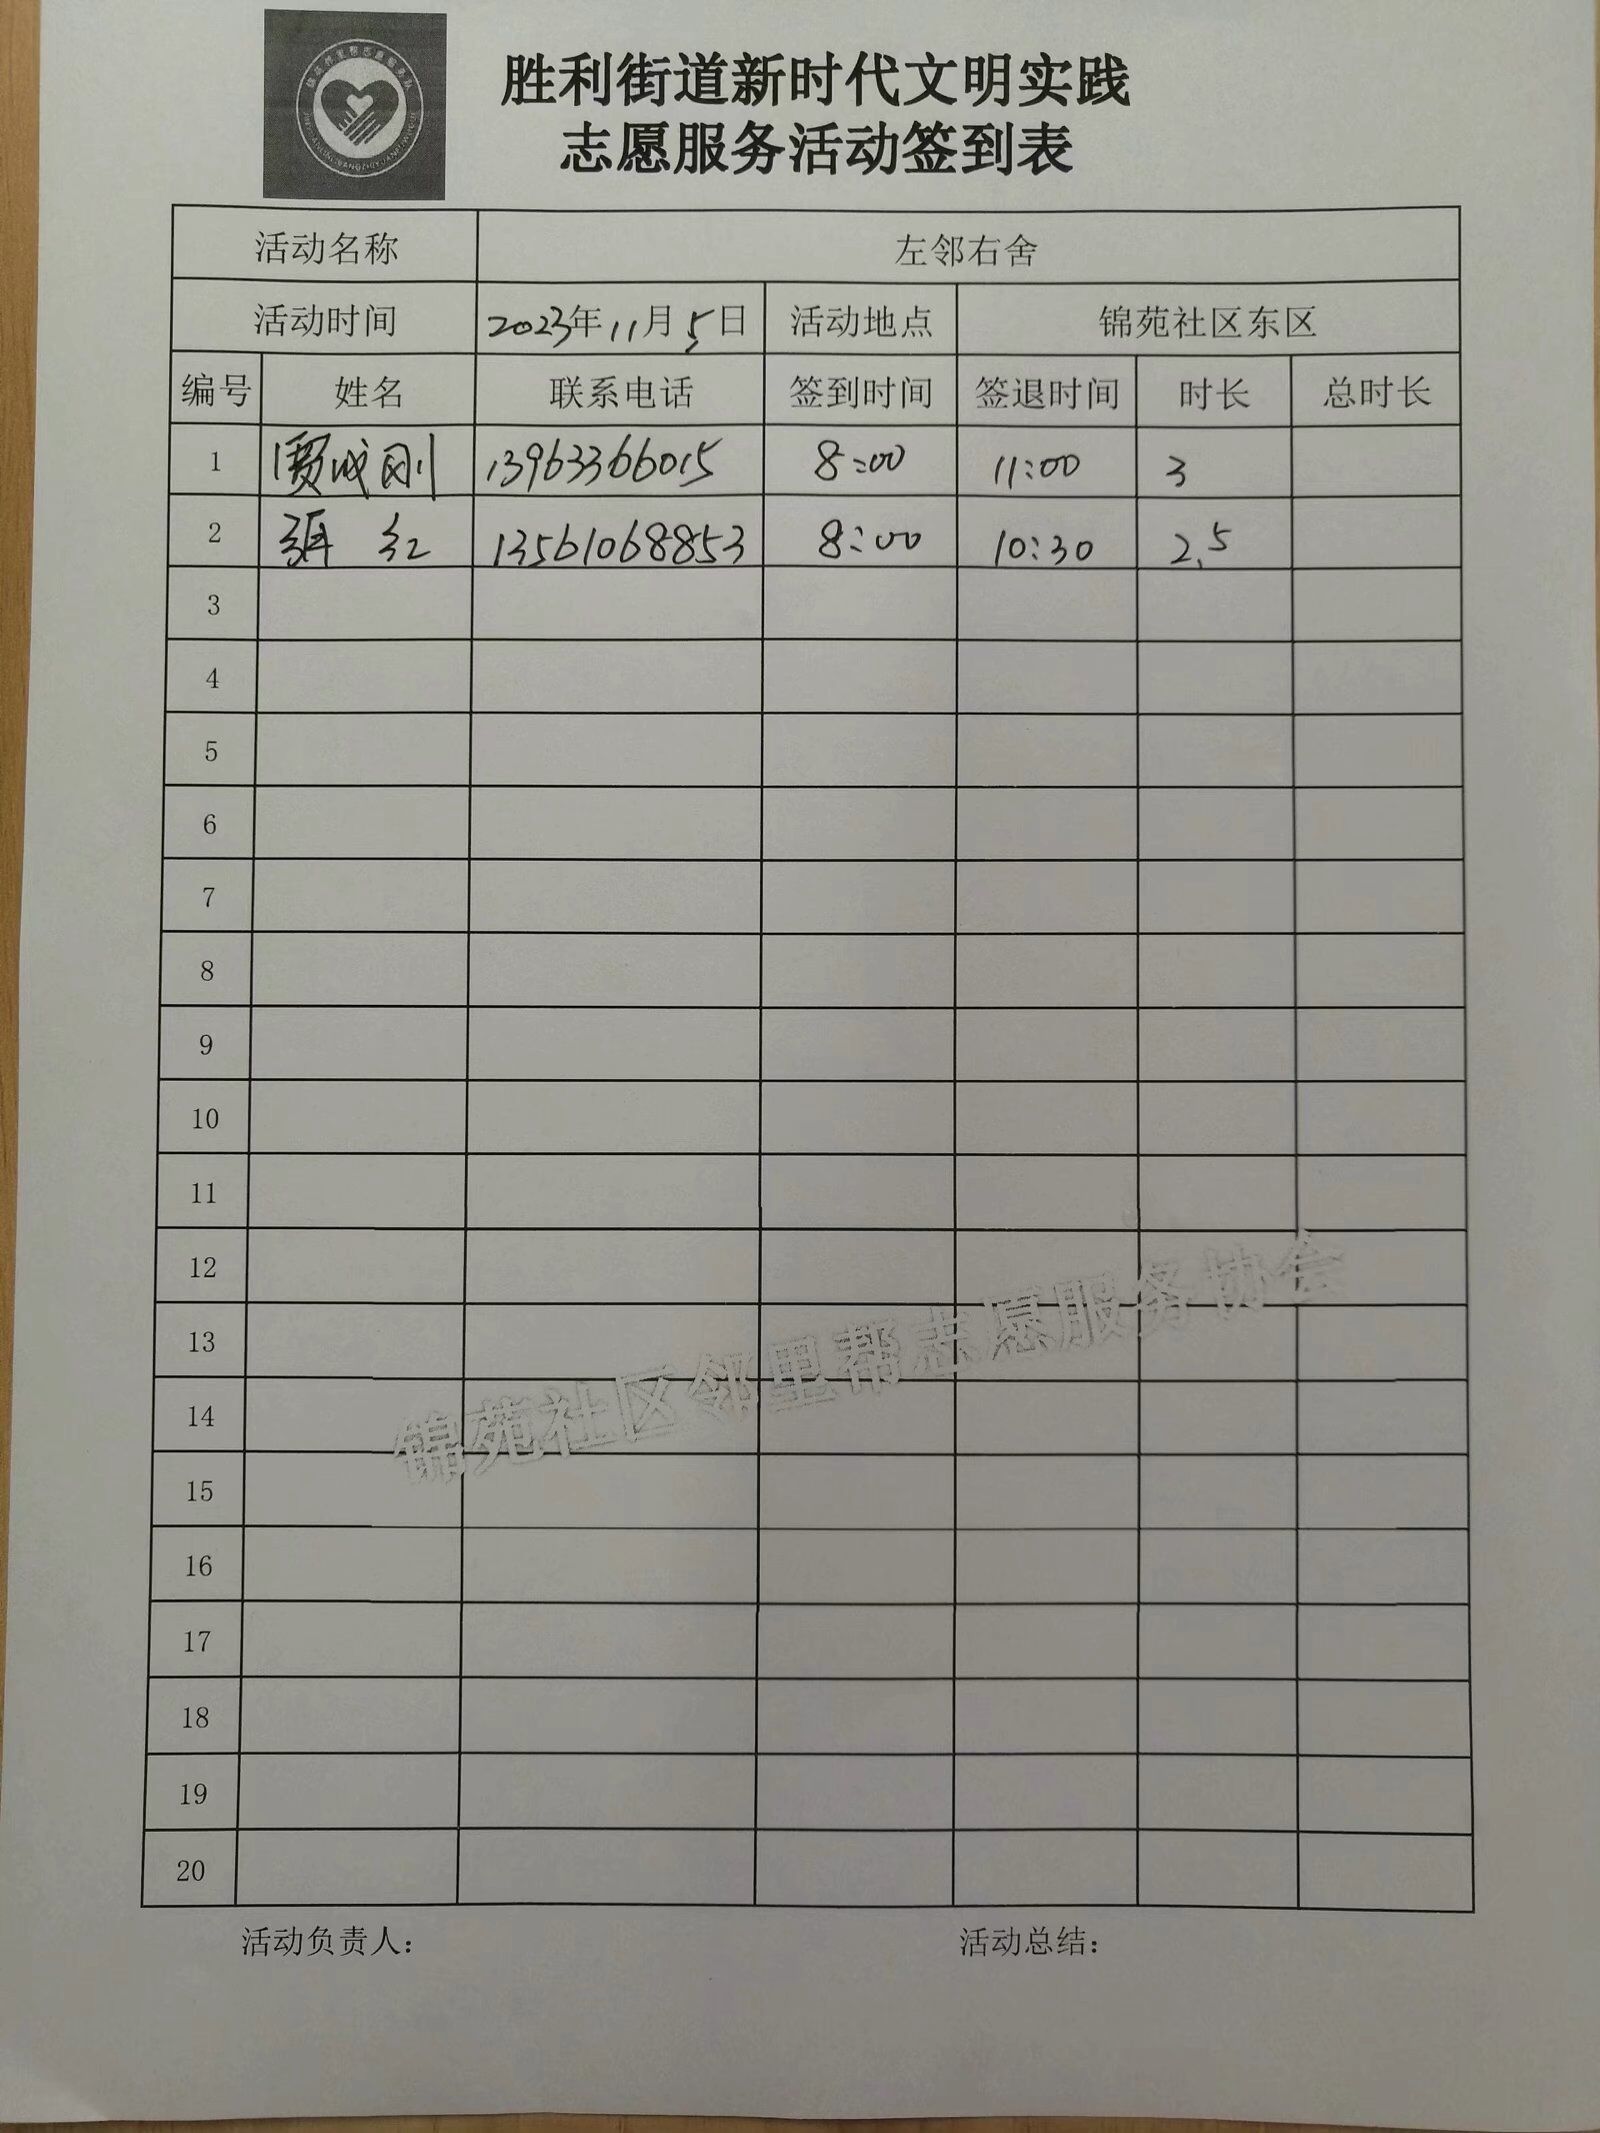 胜利街道新时代文明实践
志愿服务活动签到表
活动名称 左邻右舍
活动时间 2023年11月5日 活动地点 锦苑社区东区
编号 姓名 联系电话 签到时间 签退时间 时长 总时长
1 贾成刚 13963366015 8:00 11:00 3
2 张红 13561068853 8:00 10:30 2.5
3
4
5
6
7
8
9
10
11
12
13
14
15
16
17
18
19
20
锦苑社区邻里帮志愿服务协会
活动负责人： 活动总结：